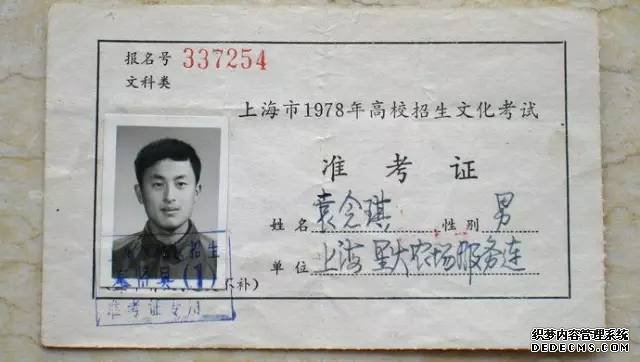 报名号 337254
文科类
上海市1978年高校招生文化考试
准考证
姓名 袁念琪 性别 男
单位 上海星火农场服务连
招生
奉贤县(1)
补)
准考证专用
织梦内容管理系统
DEDECMS.COM